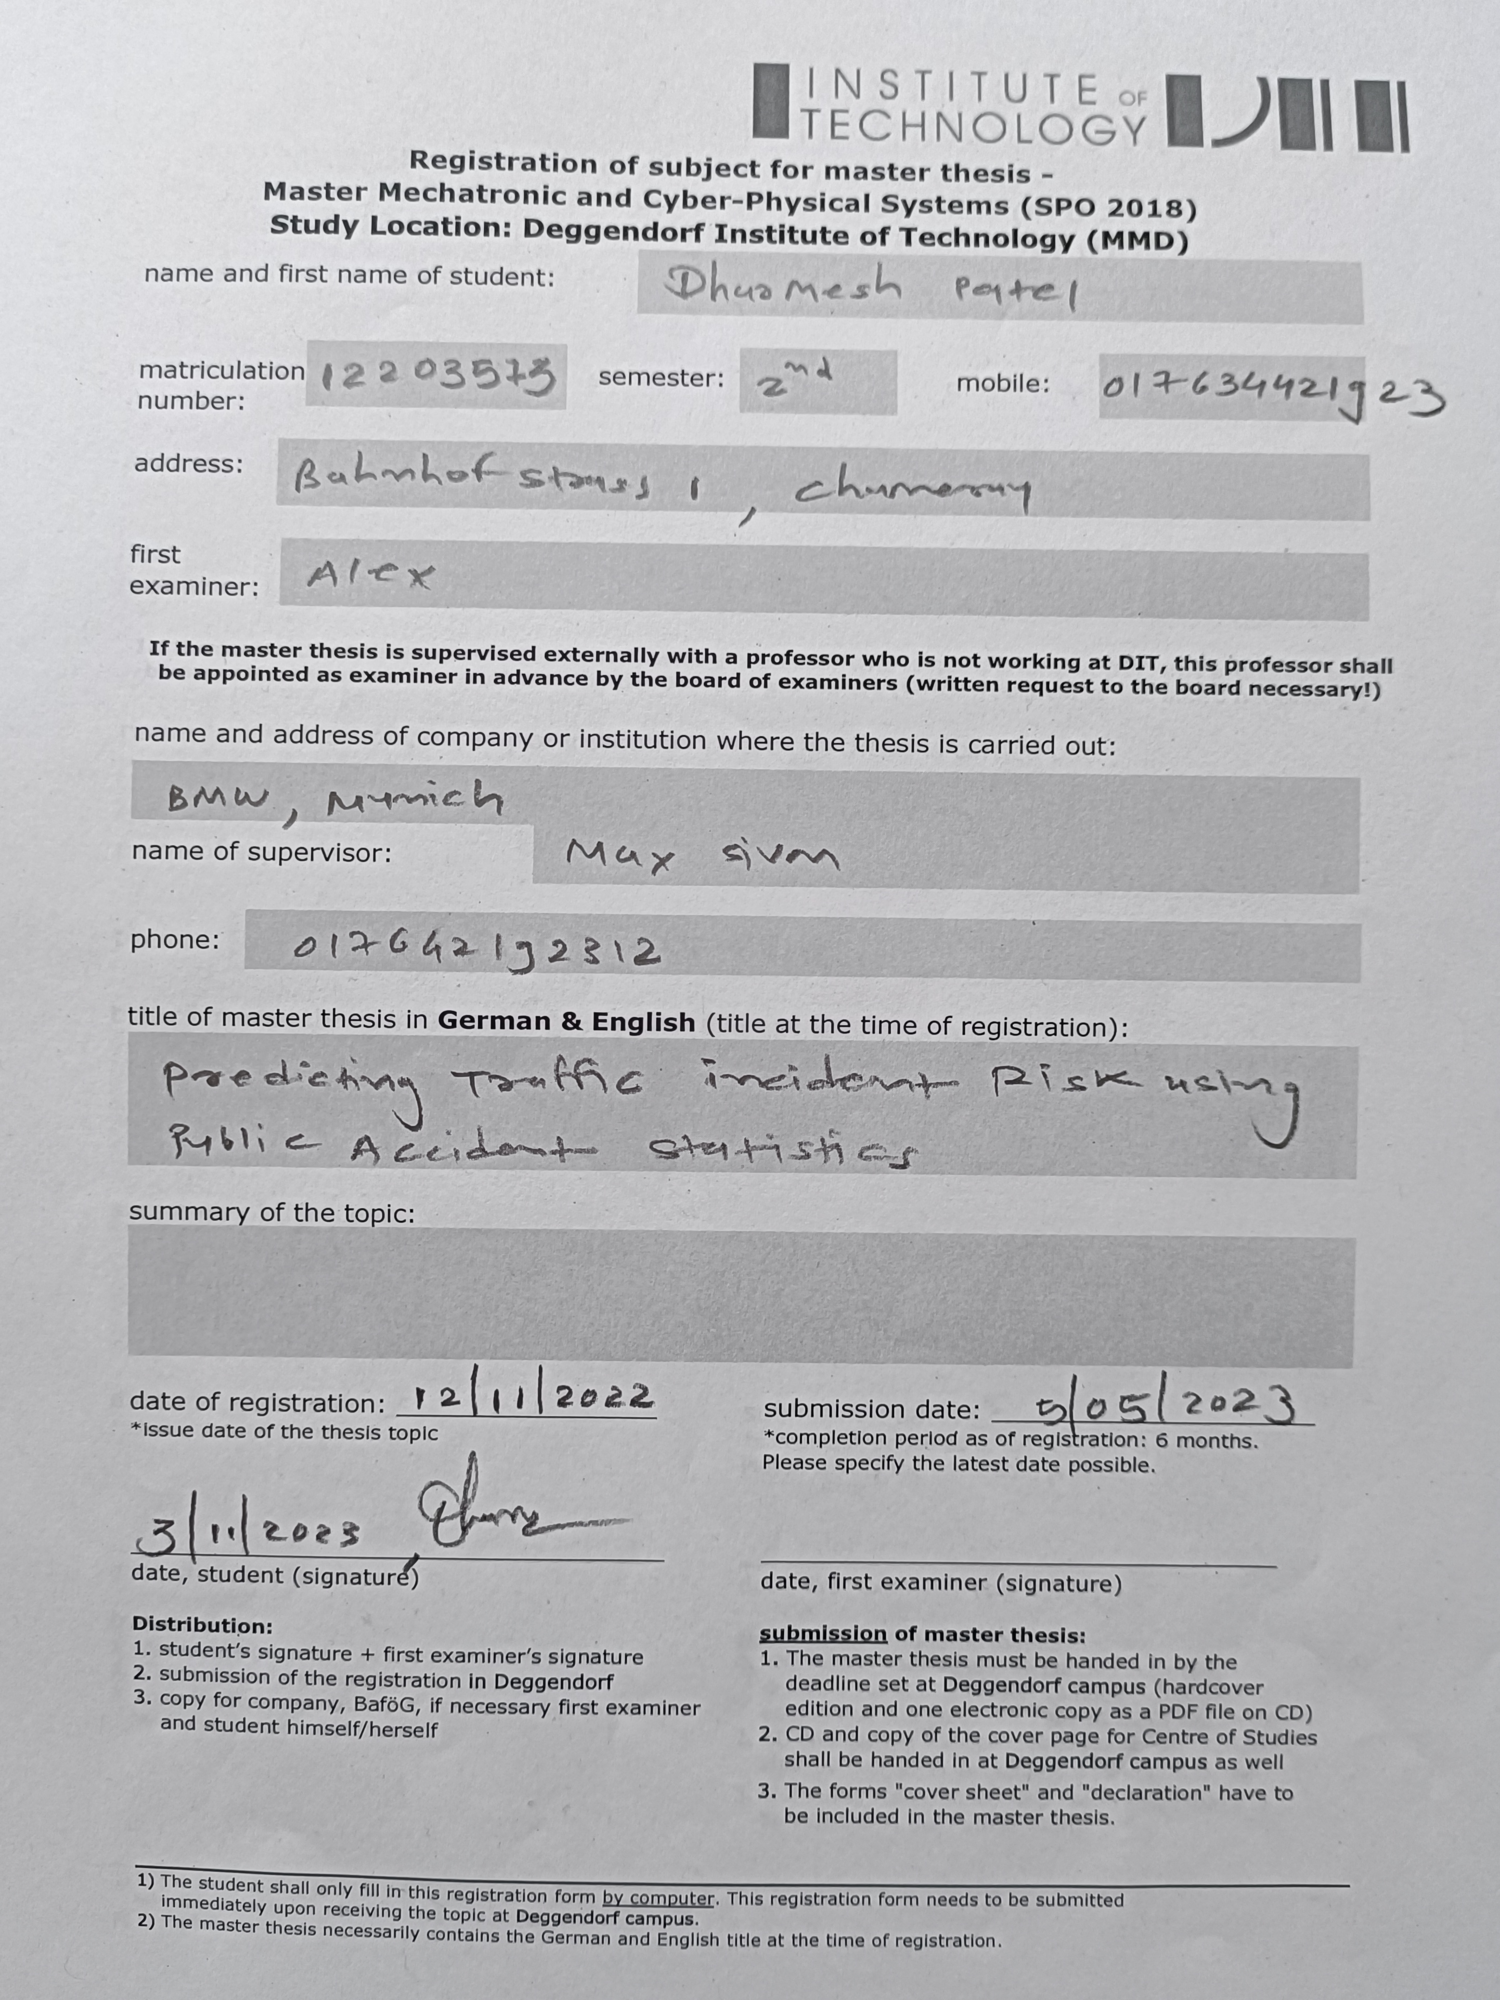 INSTITUTE OF
TECHNOLOGY
Registration of subject for master thesis –
Master Mechatronic and Cyber-Physical Systems (SPO 2018)
Study Location: Deggendorf Institute of Technology (MMD)
name and first name of student: Dharmesh Patel
matriculation number: 12203573 semester: 2nd mobile: 017634421923
address: Bahnhof strass 1,
first examiner: Alex
If the master thesis is supervised externally with a professor who is not working at DIT, this professor shall
be appointed as examiner in advance by the board of examiners (written request to the board necessary!)
name and address of company or institution where the thesis is carried out:
BMW, Munich
name of supervisor: Max
phone: 017642192312
title of master thesis in German & English (title at the time of registration):
Predicting Traffic incident Risk using
Public Accident statistics
summary of the topic:
date of registration: 12/11/2022 submission date: 5/05/2023
*issue date of the thesis topic
*completion period as of registration: 6 months.
Please specify the latest date possible.
3/11/2023
date, student (signature) date, first examiner (signature)
Distribution:
1. student's signature + first examiner's signature
2. submission of the registration in Deggendorf
3. copy for company, BaföG, if necessary first examiner
and student himself/herself
submission of master thesis:
1. The master thesis must be handed in by the
deadline set at Deggendorf campus (hardcover
edition and one electronic copy as a PDF file on CD)
2. CD and copy of the cover page for Centre of Studies
shall be handed in at Deggendorf campus as well
3. The forms "cover sheet" and "declaration" have to
be included in the master thesis.
1) The student shall only fill in this registration form by computer. This registration form needs to be submitted
immediately upon receiving the topic at Deggendorf campus.
2) The master thesis necessarily contains the German and English title at the time of registration.